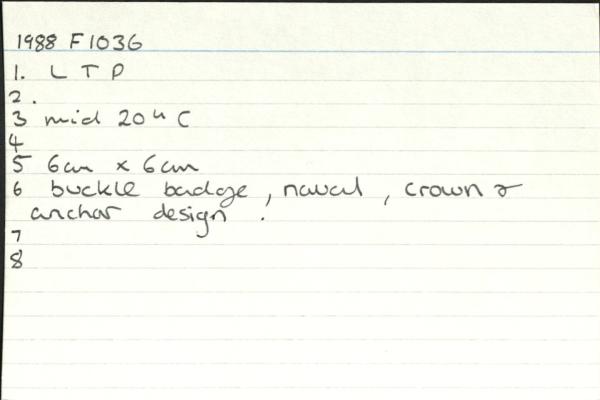 1988 F1036
1. L T P
2.
3 mid 20th C
4
5 6cm x 6cm
6 buckle badge, naval, crown &
anchor design.
7
8